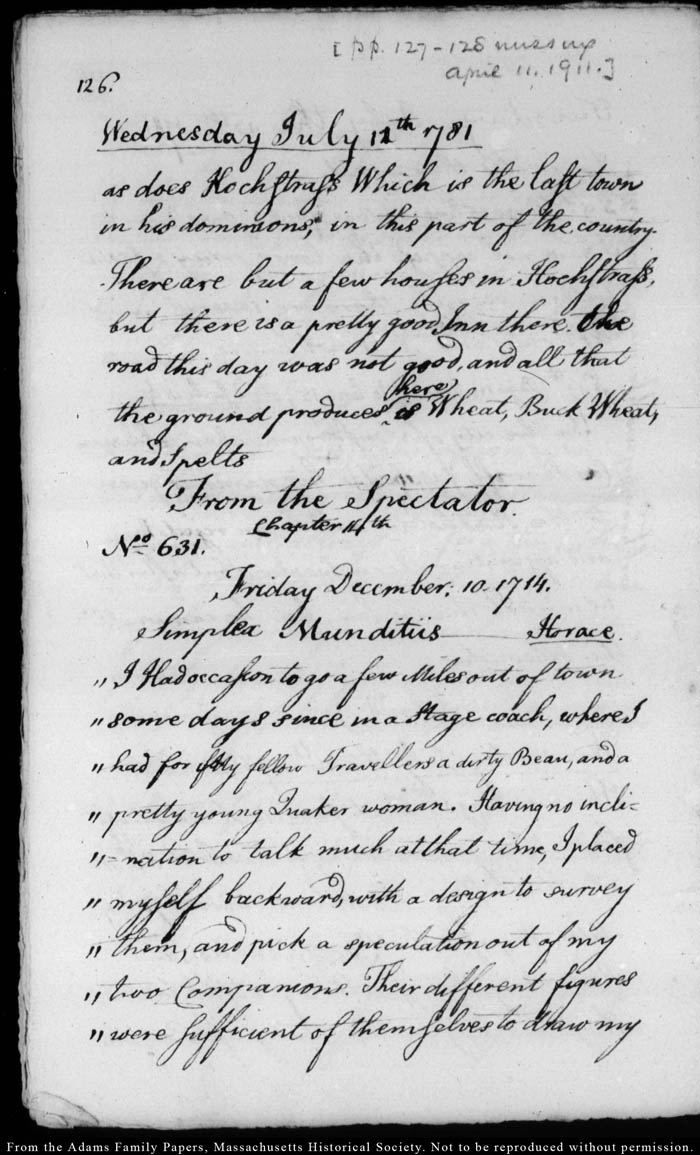 [pp. 127-128 missing
April 11, 1911.]
126.
Wednesday July 11th 1781
as does Hochstrass Which is the last town
in his dominions, in this part of the country.
There are but a few houses in Hochstrass,
but there is a pretty good Inn there. the
road this day was not good, and all that
here
the ground produces is Wheat, Buck Wheat,
and Spelts
From the Spectator.
Chapter 14th
No 631.
Friday December. 10. 1714.
Simplex Munditiis Horace.
" I Had occasion to go a few Miles out of town
" some days since in a Stage coach, where I
" had for My fellow Travellers a dirty Beau, and a
" pretty young Quaker woman. Having no incli=
"=nation to talk much at that time, I placed
" myself backward, with a design to survey
" them, and pick a speculation out of my
" two Companions. Their different figures
" were sufficient of themselves to draw my
From the Adams Family Papers, Massachusetts Historical Society. Not to be reproduced without permission.